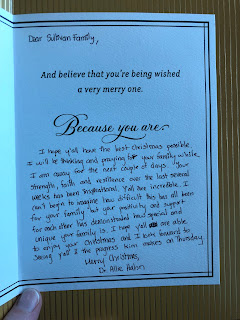 Dear Sullivan Family,
And believe that you're being wished
a very merry one.
Because you are.
I hope y'all have the best Christmas possible.
I will be thinking and praying for your family while
I am away for the next couple of days. Your
strength, faith and resilience over the last several
weeks has been inspirational. Y'all are incredible. I
can't begin to imagine how difficult this has all been
for your family but your positivity and support
for each other has demonstrated how special and
unique your family is. I hope y'all are able
to enjoy your Christmas and I look forward to
seeing y'all & the progress makes on Thursday.
Merry Christmas,
Dr. Allie